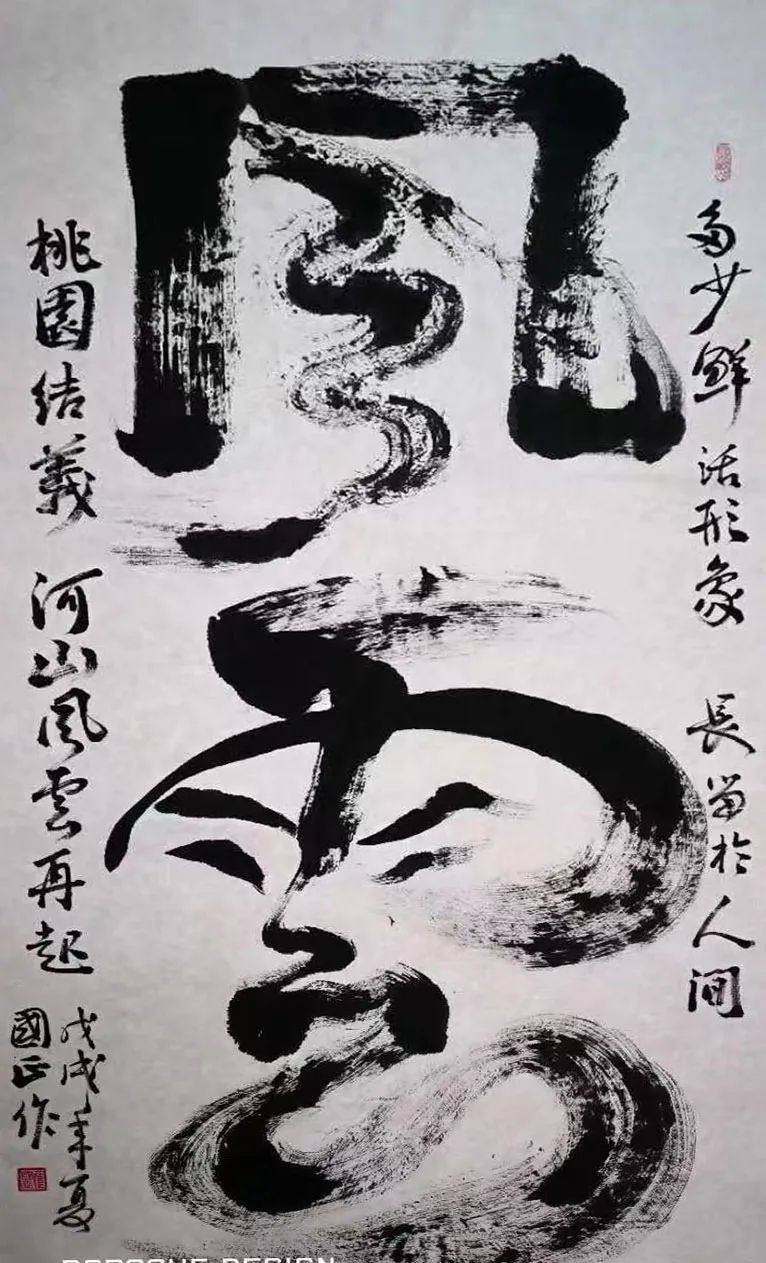 風雲
多少鲜活形象 長留於人间
桃園结義 河山风雲再起
戊戌年夏
國正作